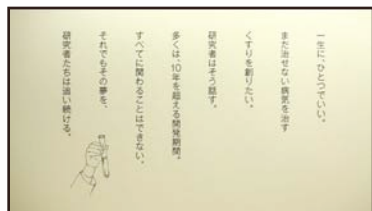 一生に、ひとつでいい。
まだ治せない病気を治す
くすりを創りたい。
研究者はそう話す。
多くは、10年を超える開発期間。
すべてに関わることはできない。
それでもその夢を、
研究者たちは追い続ける。